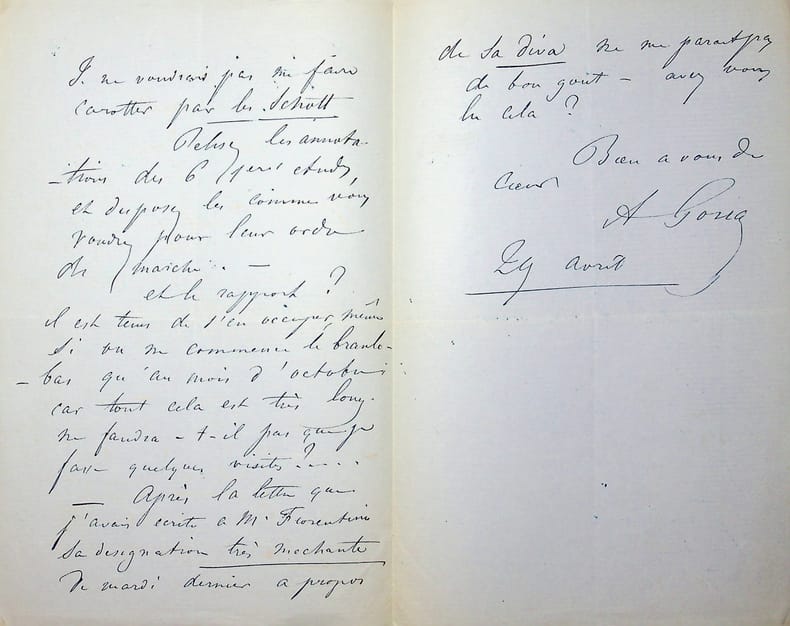 Je ne voudrais pas me faire
carotter par les Schott
Pensez les annota-
-tions des 6 1eres etudes,
et disposez les comme vous
voudrez pour leur ordre
de marche. —
et le rapport ?
il est tems de s'en occuper, même
si on ne commence le branle-
- bas qu'au mois d'octobre
car tout cela est très long.
ne faudra-t-il pas que je
fasse quelques visites ?....
— Après la lettre que
j'avais ecrite a Mr Fiorentini
sa designation très mechante
de mardi dernier a propos
de sa diva ne me parait pas
de bon goût — avez vous
lu cela ?
Bien a vous de
cœur
A Goria
29 avril